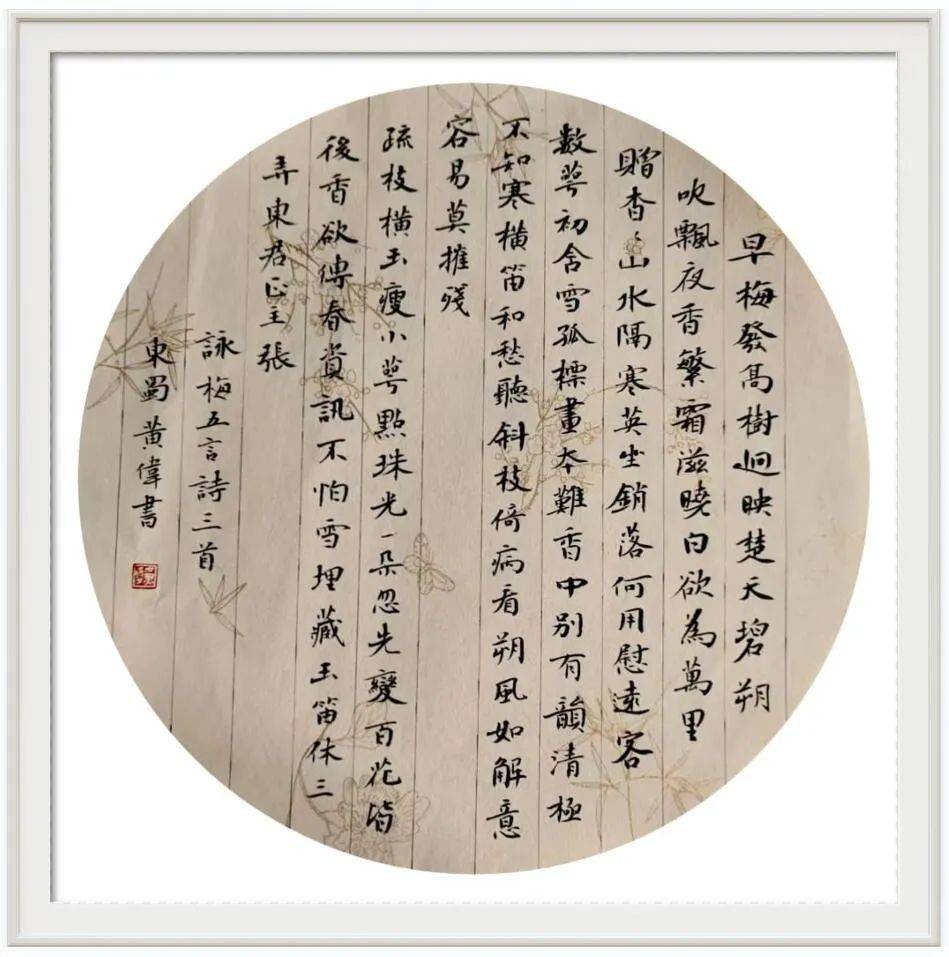 早梅發髙樹迥映楚天碧朔
吹飄夜香繁霜滋曉白欲為萬里
贈杳〻山水隔寒英坐銷落何用慰遠客
數萼初含雪孤標畫本難香中別有韻清極
不知寒橫笛和愁聽斜枝倚病看朔風如解意
容易莫摧殘
疏枝橫玉瘦小萼點珠光一朵忽先變百花皆
後香欲傳春賞訊不怕雪埋藏玉笛休三
弄東君正主張
詠梅五言詩三首
東蜀黃偉書